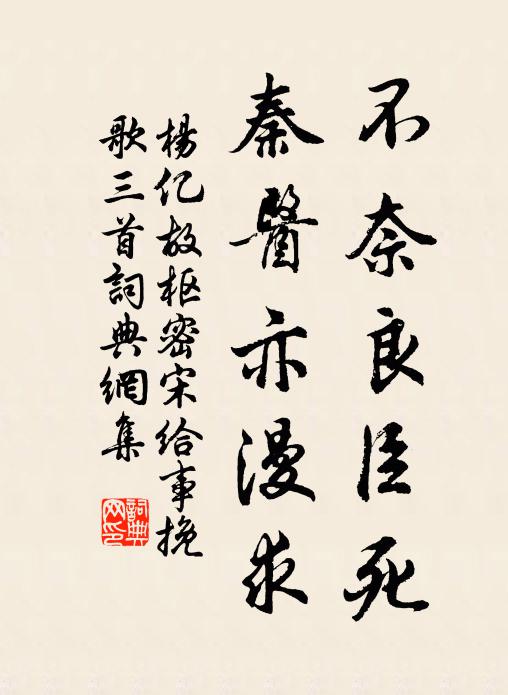 不奈良臣死
秦醫亦漫求
楊亿故枢密宋给事挽
歌三首詞典網集
詞典网印